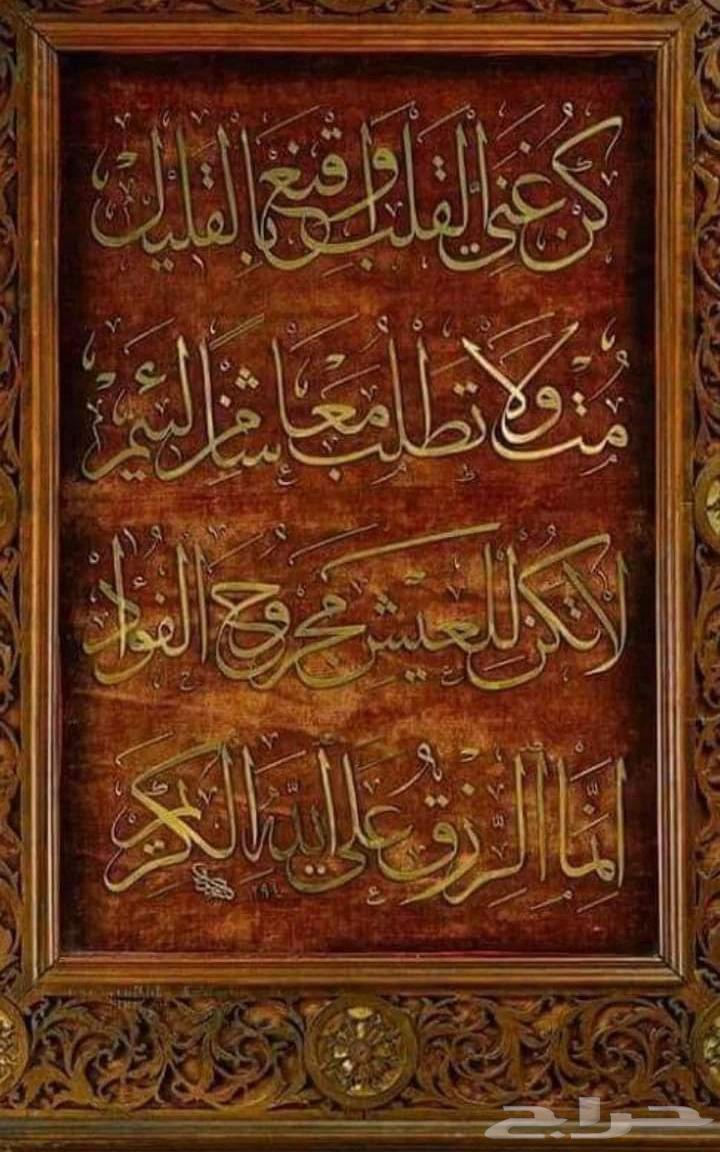 كُن غَنِيَّ القَلبِ وَاقنَع بِالقَلِيل
مُت وَلَا تَطلُب مَعَاشًا مِن لَئِيم
لَا تَكُن لِلعَيشِ مَجرُوحَ الفُؤَاد
إِنَّمَا الرِّزقُ عَلَى اللهِ الكَرِيم
حراج